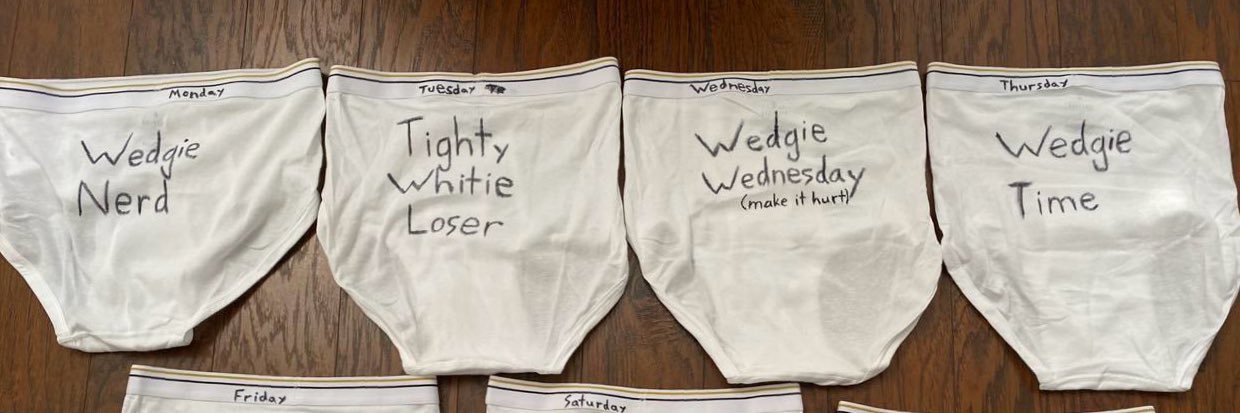 Monday
Wedgie
Nerd
Tuesday
Tighty
Whitie
Loser
Wednesday
Wedgie
Wednesday
(make it hurt)
Thursday
Wedgie
Time
Friday
Saturday